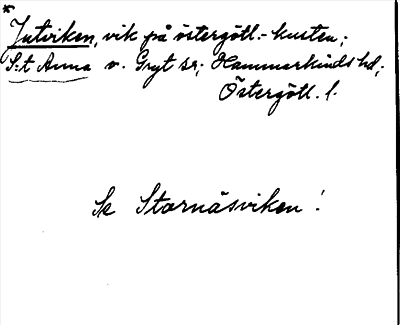 *
Jutviken, vik på östergötl.-kusten;
S:t Anna o. Gryt sr; Hammarkinds hd;
Östergötl. l.
Se Stornäsviken!